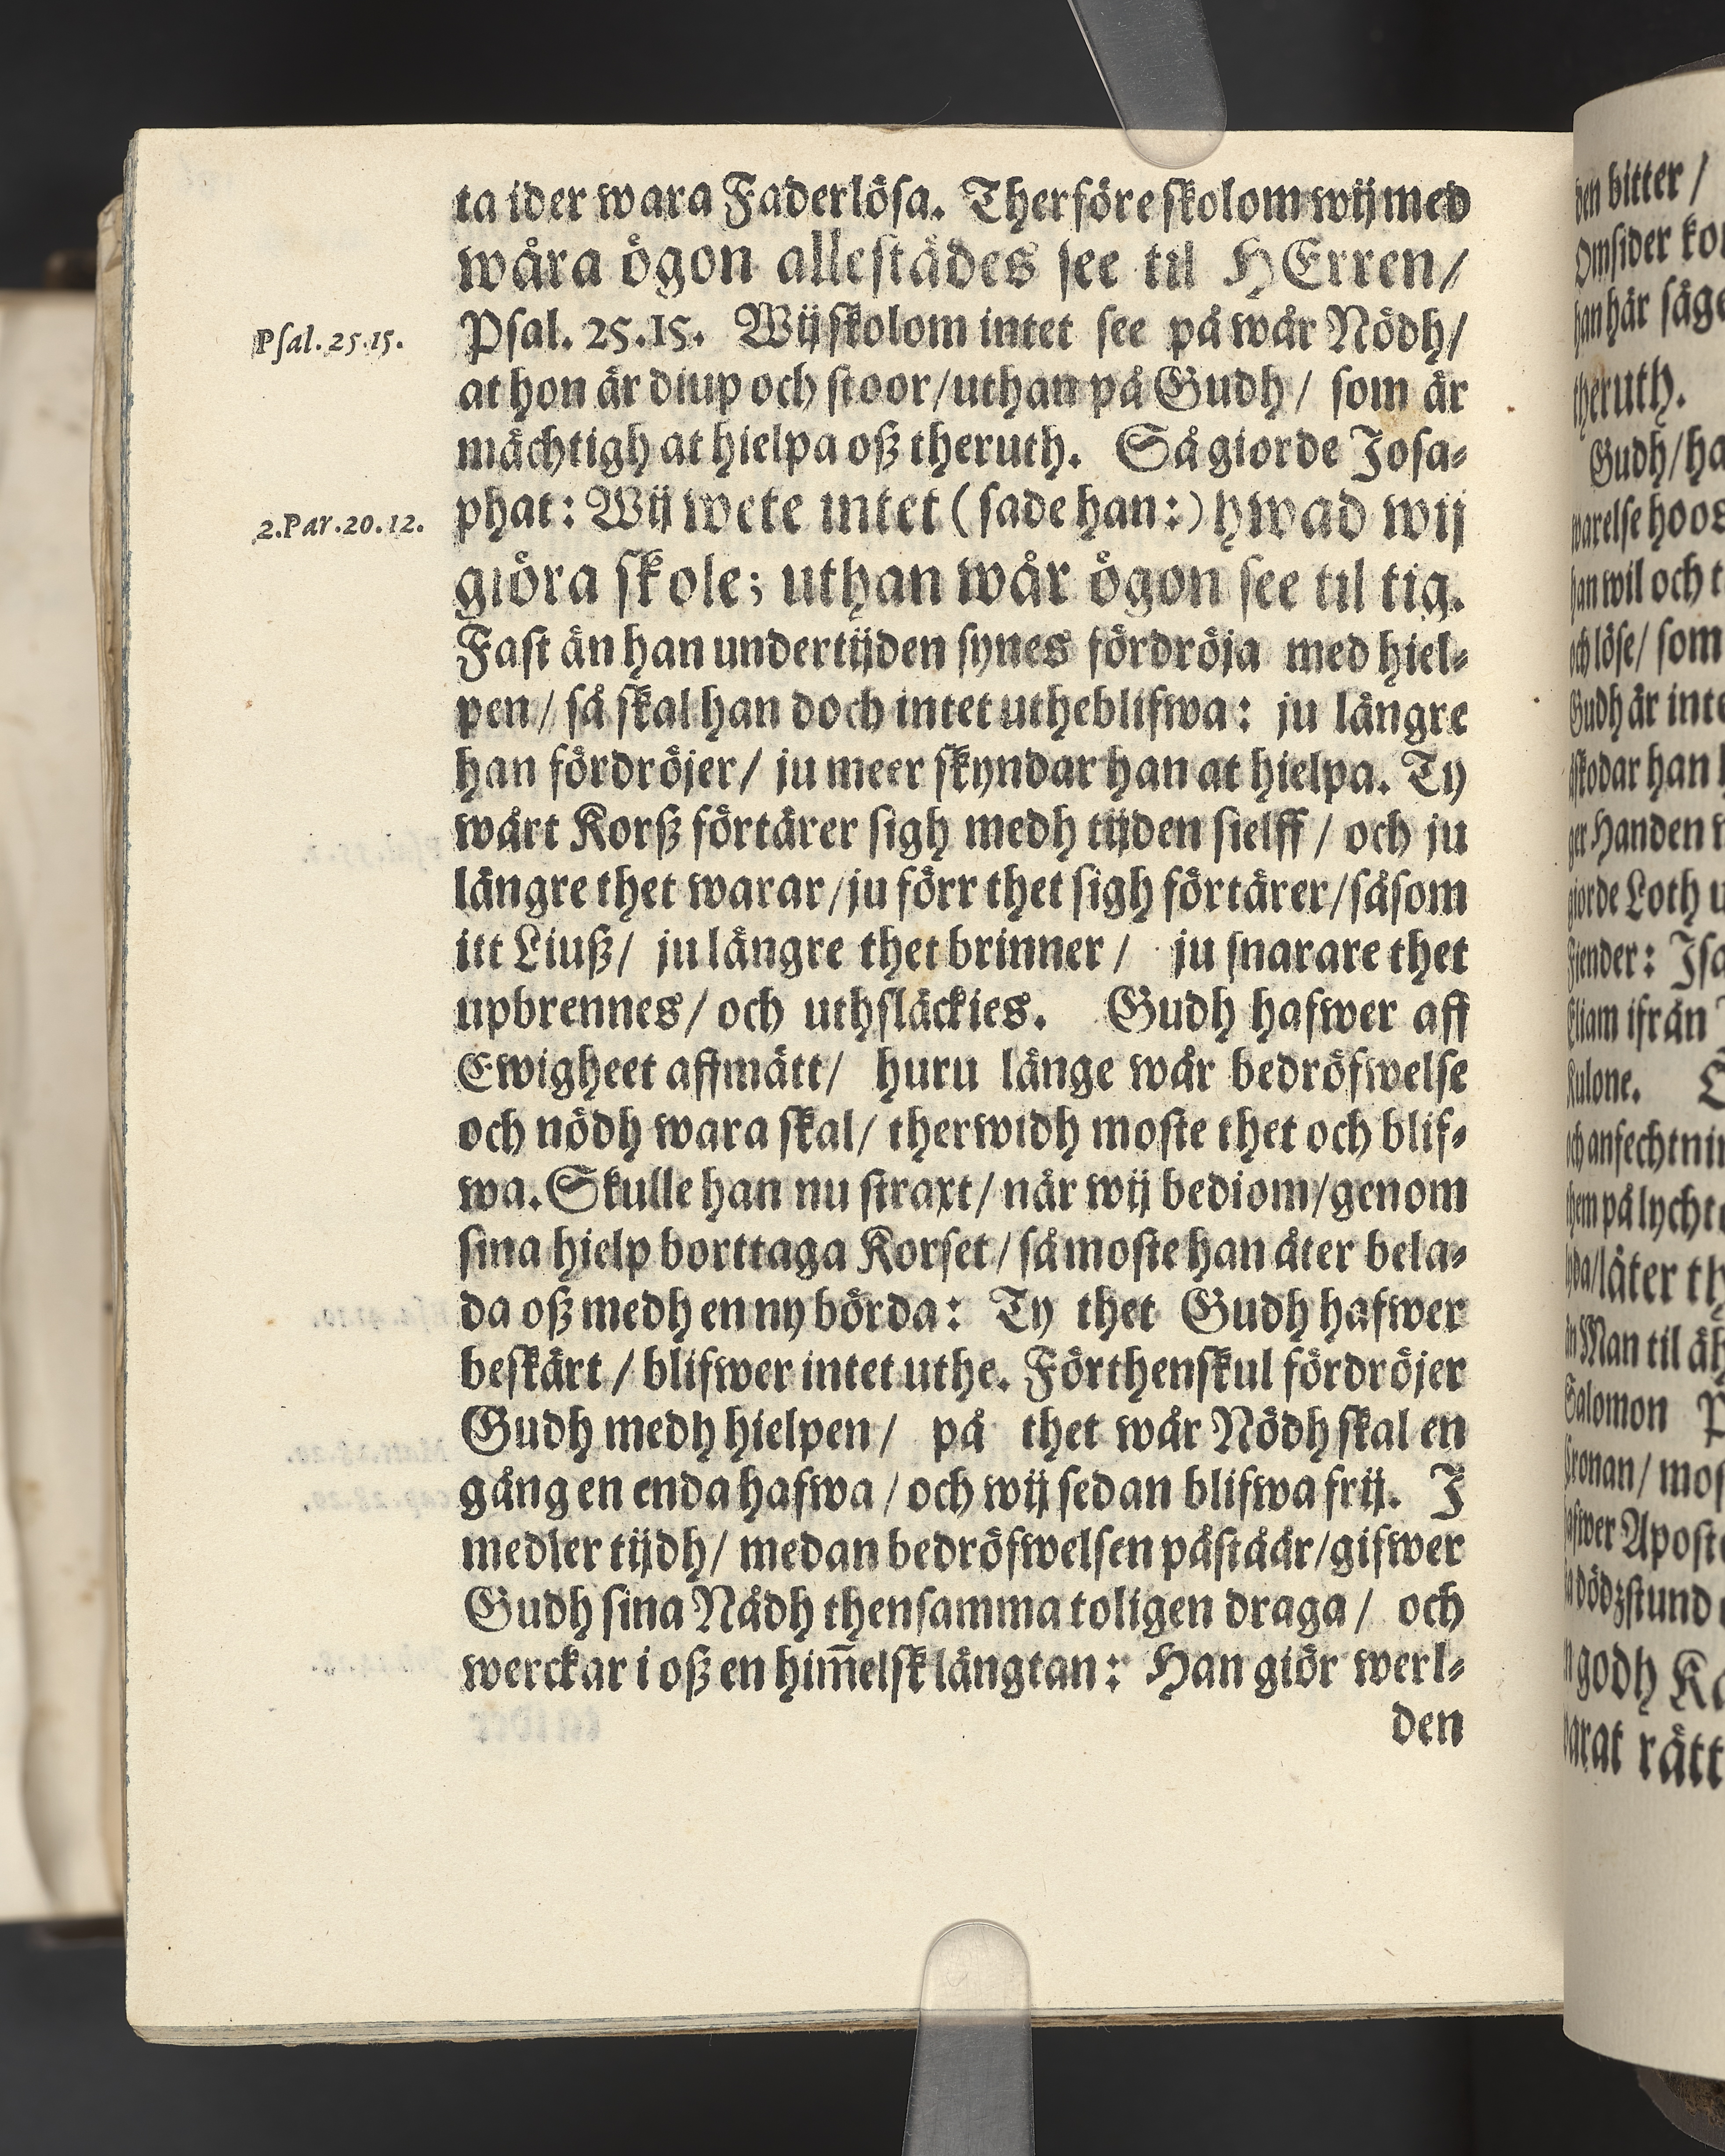 ta ider wara Faderlösa. Therföre skolom wij med
wåra ögon allestädes see til HErren/
Psal. 25.15.
Psal. 25.15. Wij skolom intet see på wår Nödh/
at hon är diup och stoor/uthan på Gudh/ som är
mächtigh at hielpa oß theruth. Så giorde Josa-
2.Par.20.12.
phat: Wij wete intet (sade han:) hwad wij
giöra skole; uthan wår ögon see til tig.
Fast än han undertijden synes fördröja med hiel-
pen/ så skal han doch intet utheblifwa: ju längre
han fördröjer/ ju meer skyndar han at hielpa. Ty
wårt Korß förtärer sigh medh tijden sielff/ och ju
längre thet warar/ju förr thet sigh förtärer/såsom
itt Liuß/ ju längre thet brinner/ ju snarare thet
upbrennes/och uthsläckies. Gudh hafwer aff
Ewigheet affmätt/ huru länge wår bedröfwelse
och nödh wara skal/ therwidh moste thet och blif-
wa. Skulle han nu straxt/när wij bediom/genom
sina hielp borttaga Korset/så moste han åter bela-
da oß medh en ny börda: Ty thet Gudh hafwer
beskärt/blifwer intet uthe. Förthenskul fördröjer
Gudh medh hielpen/ på thet wår Nödh skal en
gång en enda hafwa/och wij sedan blifwa frij. I
medler tijdh/ medan bedröfwelsen påståår/gifwer
Gudh sina Nådh thensamma toligen draga/ och
werckar i oß en him̄elsk längtan: Han giör werl-
den
den bitter/
Omsider
han här
theruth.
Gudh/
hoos
han wil och
löse/ som
Gudh är
han
Handen
giorde Loth
Fiender:
Eliam ifrån
Kulone.
them på
låter
Man til
Salomon
Cronan/
dödzstund
godh
rätt